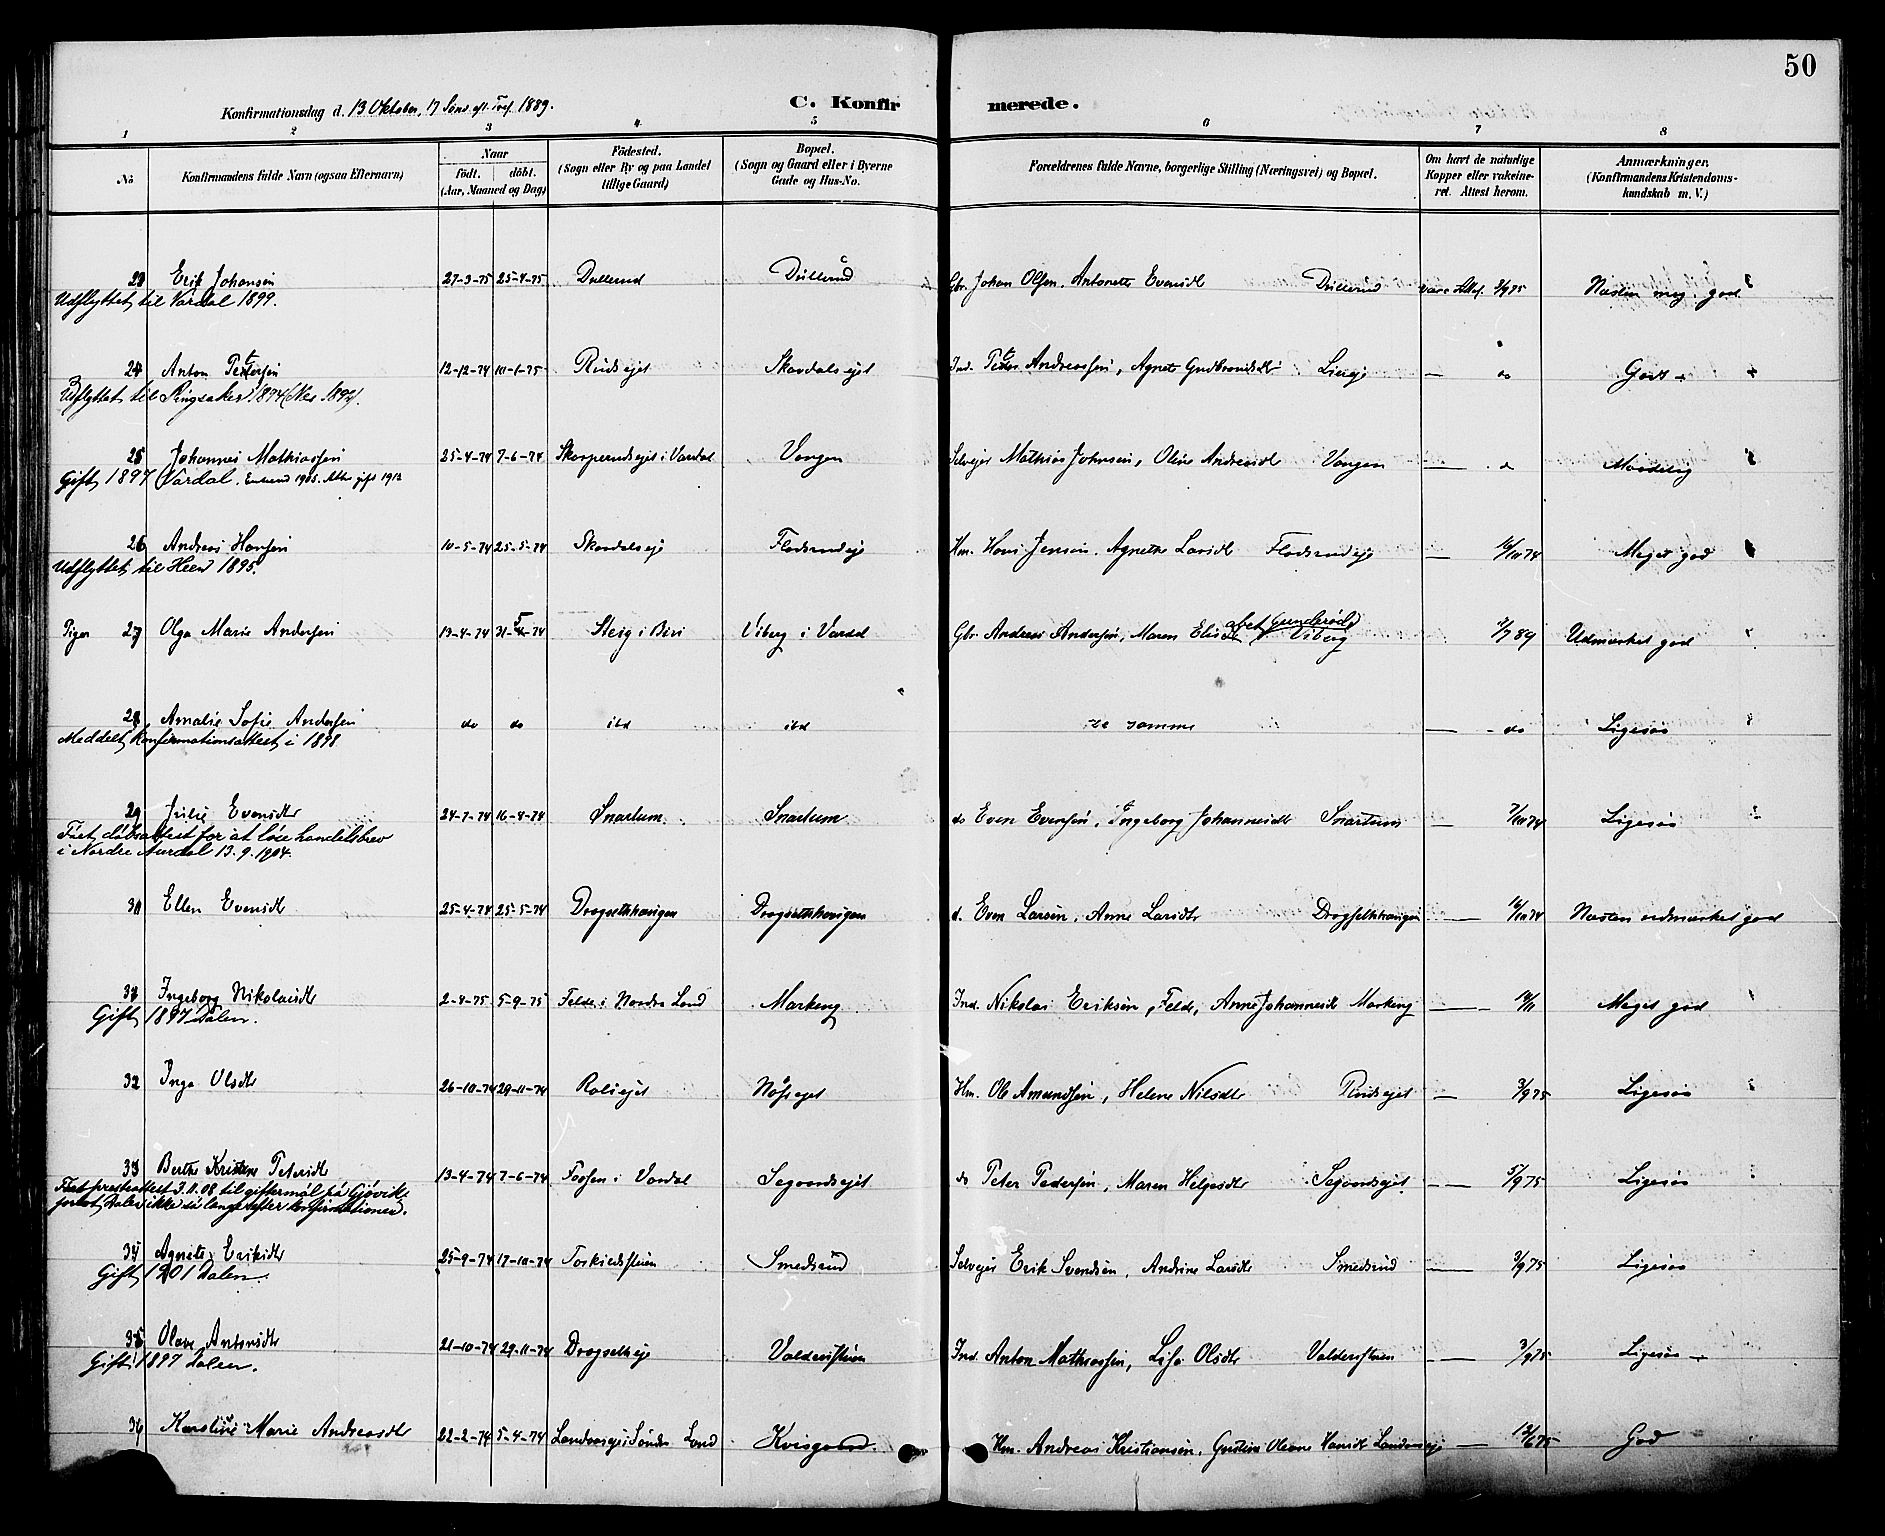 50
Konfirmationsdag d. 13 Oktober, 17 Sönd. eft. Tref. 1889.
C. Konfirmerede.
1 2 3 4 5 6 7 8
No Konfirmandens fulde Navn (ogsaa Efternavn) Naar födt. döbt. (Aar, Maaned og Dag) Födested. (Sogn eller By og paa Landet tillige Gaard) Bopæl. (Sogn og Gaard eller i Byerne Gade og Hus-No. Forældrenes fulde Navne, borgerlige Stilling (Næringsvei) og Bopæl. Om havt de naturlige Kopper eller vakcineret. Attest herom. Anmærkninger. (Konfirmandens Kristendomskundskab m. V.)
23 Erik Johansen 27-3-75 25-4-75 Dullerud Dullerud Gbr. Johan Olsen, Antonette Evensdt Dullerud vacc. Attest 3/9 75 Næsten meg. god
Udflyttet til Vardal 1899.
24 Anton Petersen 12-12-74 10-1-75 Rudsejet Skardalsejet Ind. Peter Andreassen, Agnete Gudbrandsdtr Lieeje — do Godt
Udflyttet til Ringsaker 1894 (Nes 1897).
25 Johannes Mathiassen 25-4-74 7-6-74 Skonperudsejet i Vardal Vangen Selvejer Mathias Johnsen, Oline Andreasdt Vangen — do Maadelig
Gift 1897 Vardal. Enkemd 1905. Atter gift 1912
26 Andreas Hansen 10-5-74 25-5-74 Skardalseje Flodsrudeje Hm. Hans Jensen, Agnethe Larsdt Flodsrudeje — 16/10 74 Meget god
Udflyttet til Heen 1895.
Piger 27 Olga Marie Andersen 13-4-74 31-5-74 Steig i Biri Viberg i Vardal Gbr. Andreas Andersen, Maren Elisdt Viberg 1/7 89 Udmærket god
28 Amalie Sofie Andersen do do ibd ibd de samme — do Ligesaa
Meddelt konfirmationsattest i 1898
29 Julie Evensdtr 24-7-74 16-4-74 Snartum Snartum do Even Evensen, Ingeborg Johannesdt Snartum — 7/10 74 Ligesaa
Fået dåbsattest for at løse handelsbrev
i Nordre Aurdal 13.9.1904.
30 Ellen Evensdt 25-4-74 25-5-74 Drogsethhaugen Drogsethhaugen d. Even Larsen, Anne Larsdtr Drogsethhaugen — 16/10 74 Næsten udmærket god
31 Ingeborg Nikolaisdtr 2-4-75 5-9-75 Felde i Nordre Land Markeng Ind. Nikolai Eriksen, Felde, Anne Johannesdt Markeng — 14/11 Meget god
Gift 1897 Dalen.
32 Inga Olsdtr 26-10-74 29-11-74 Rolsejet Nøssejet Hm. Ole Amundsen, Helene Nilsdtr Rudsejet — 3/9 75 Ligesaa
33 Berthe Kristine Petersdtr 13-4-74 7-6-74 Fossen i Vardal Segaardsejet do Peter Pedersen, Maren Helgesdtr Segaardsejet — 5/9 75 Ligesaa
Fået presteattest 3.11.08 til giftermål på Gjøvik,
forlot Dalen ikke så lange efter konfirmationen.
34 Agnete Eriksdtr 25-9-74 17-10-74 Torkildstuen Smedsrud Selvejer Erik Svendsen, Andrine Larsdtr Smedsrud — 3/9 75 Ligesaa
Gift 1901 Dalen.
35 Olave Antonsdtr 21-10-74 29-11-74 Drogsetheje Valdersstuen Ind. Anton Mathiassen, Lisa Olsdtr Valdersstuen — 3/9 75 Ligesaa
Gift 1897 Dalen.
36 Karoline Marie Andreasdtr 22-2-74 5-4-74 Landaaseje i Søndre Land Kvisgaard. Hm. Andreas Kristiansen, Gustine Oleane Hansdt Landaaseje — 12/6 75 God